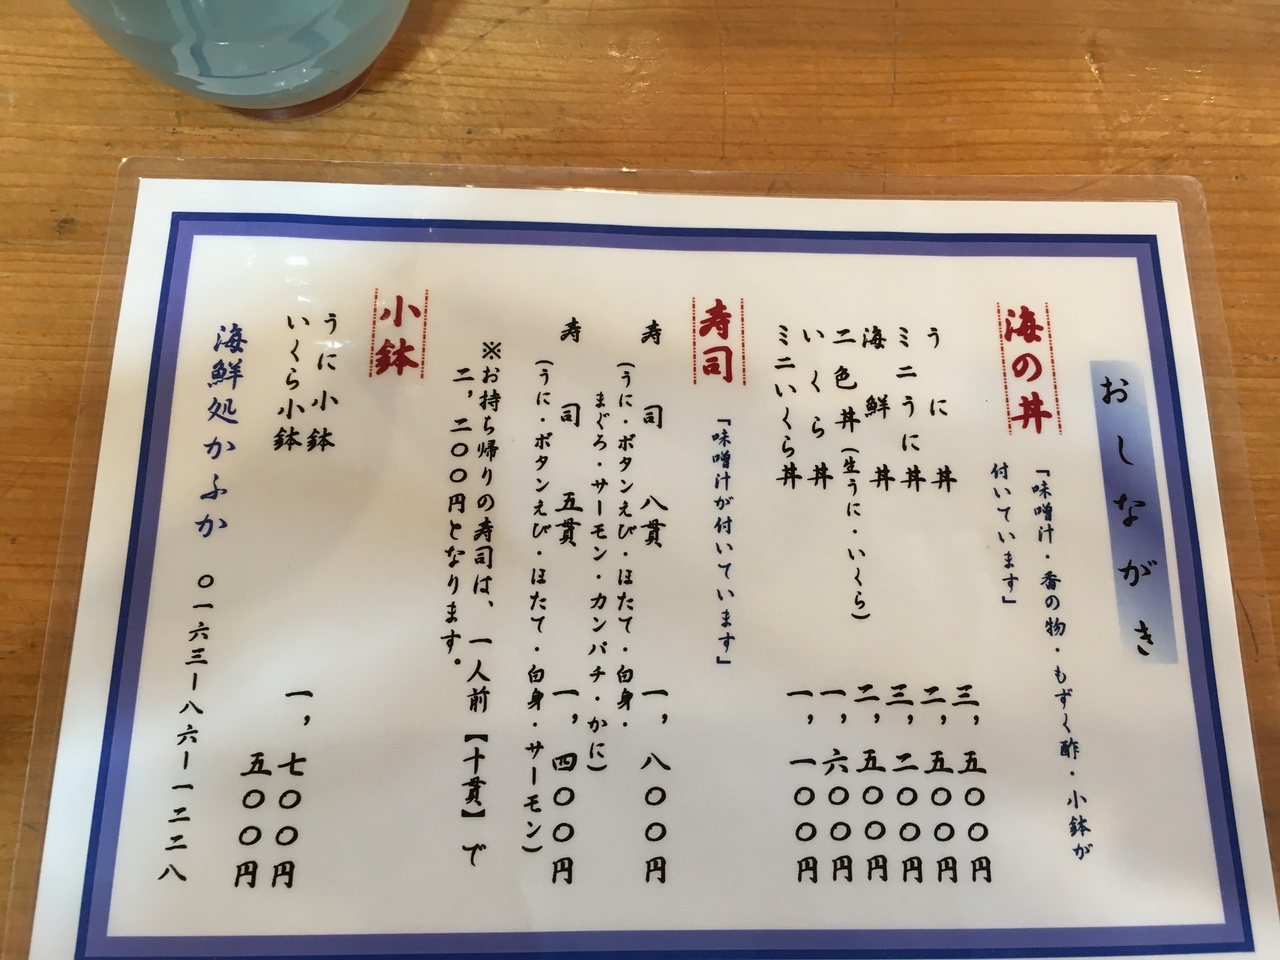 おしながき
海の丼
「味噌汁・香の物・もずく酢・小鉢が
付いています」
うに丼 三，五〇〇円
ミニうに丼 二，五〇〇円
海鮮丼 三，二〇〇円
二色丼(生うに・いくら) 二，五〇〇円
いくら丼 一，六〇〇円
ミニいくら丼 一，一〇〇円
寿司
「味噌汁が付いています」
寿司 八貫 一，八〇〇円
(うに・ボタンえび・ほたて・白身・
まぐろ・サーモン・カンパチ・かに)
寿司 五貫 一，四〇〇円
(うに・ボタンえび・ほたて・白身・サーモン)
※お持ち帰りの寿司は、一人前【十貫】で
二，二〇〇円となります。
小鉢
うに小鉢 一，七〇〇円
いくら小鉢 五〇〇円
海鮮処かふか 〇一六三ー八六ー一二二八